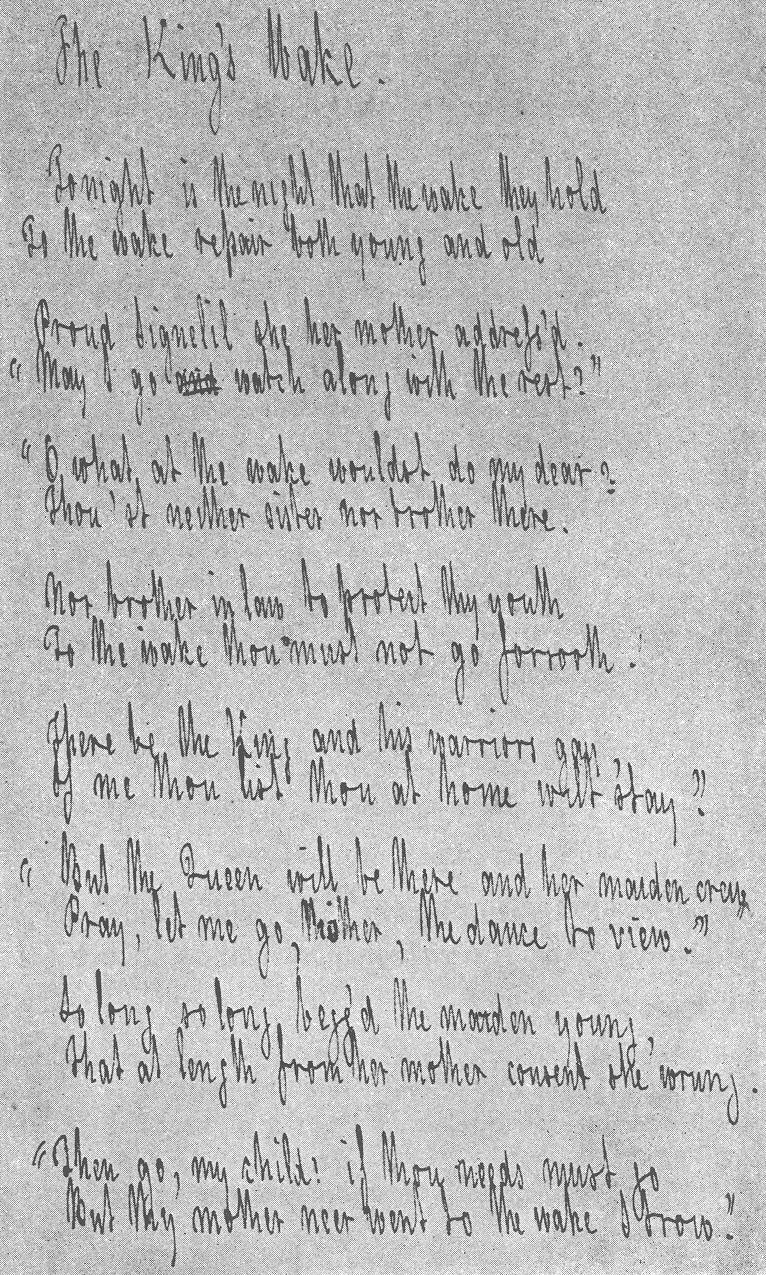 The King's Wake.
Tonight is the night that the wake they hold
To the wake repair both young and old
Proud Signelil she her mother address'd.
"May I go and watch along with the rest?"
"O what at the wake wouldst do my dear?
Thou'st neither sister nor brother there.
Nor brother in law to protect thy youth
To the wake thou must not go forsooth.
There be the King and his warriors gay
If me thou list thou at home wilt stay"
"But the Queen will be there and her maiden crew
Pray, let me go, Mother, the dance to view."
So long so long begg'd the maiden young,
That at length from her mother consent she wrung.
"Then go, my child! if thou needs must go
But thy mother neer went to the wake I trow."